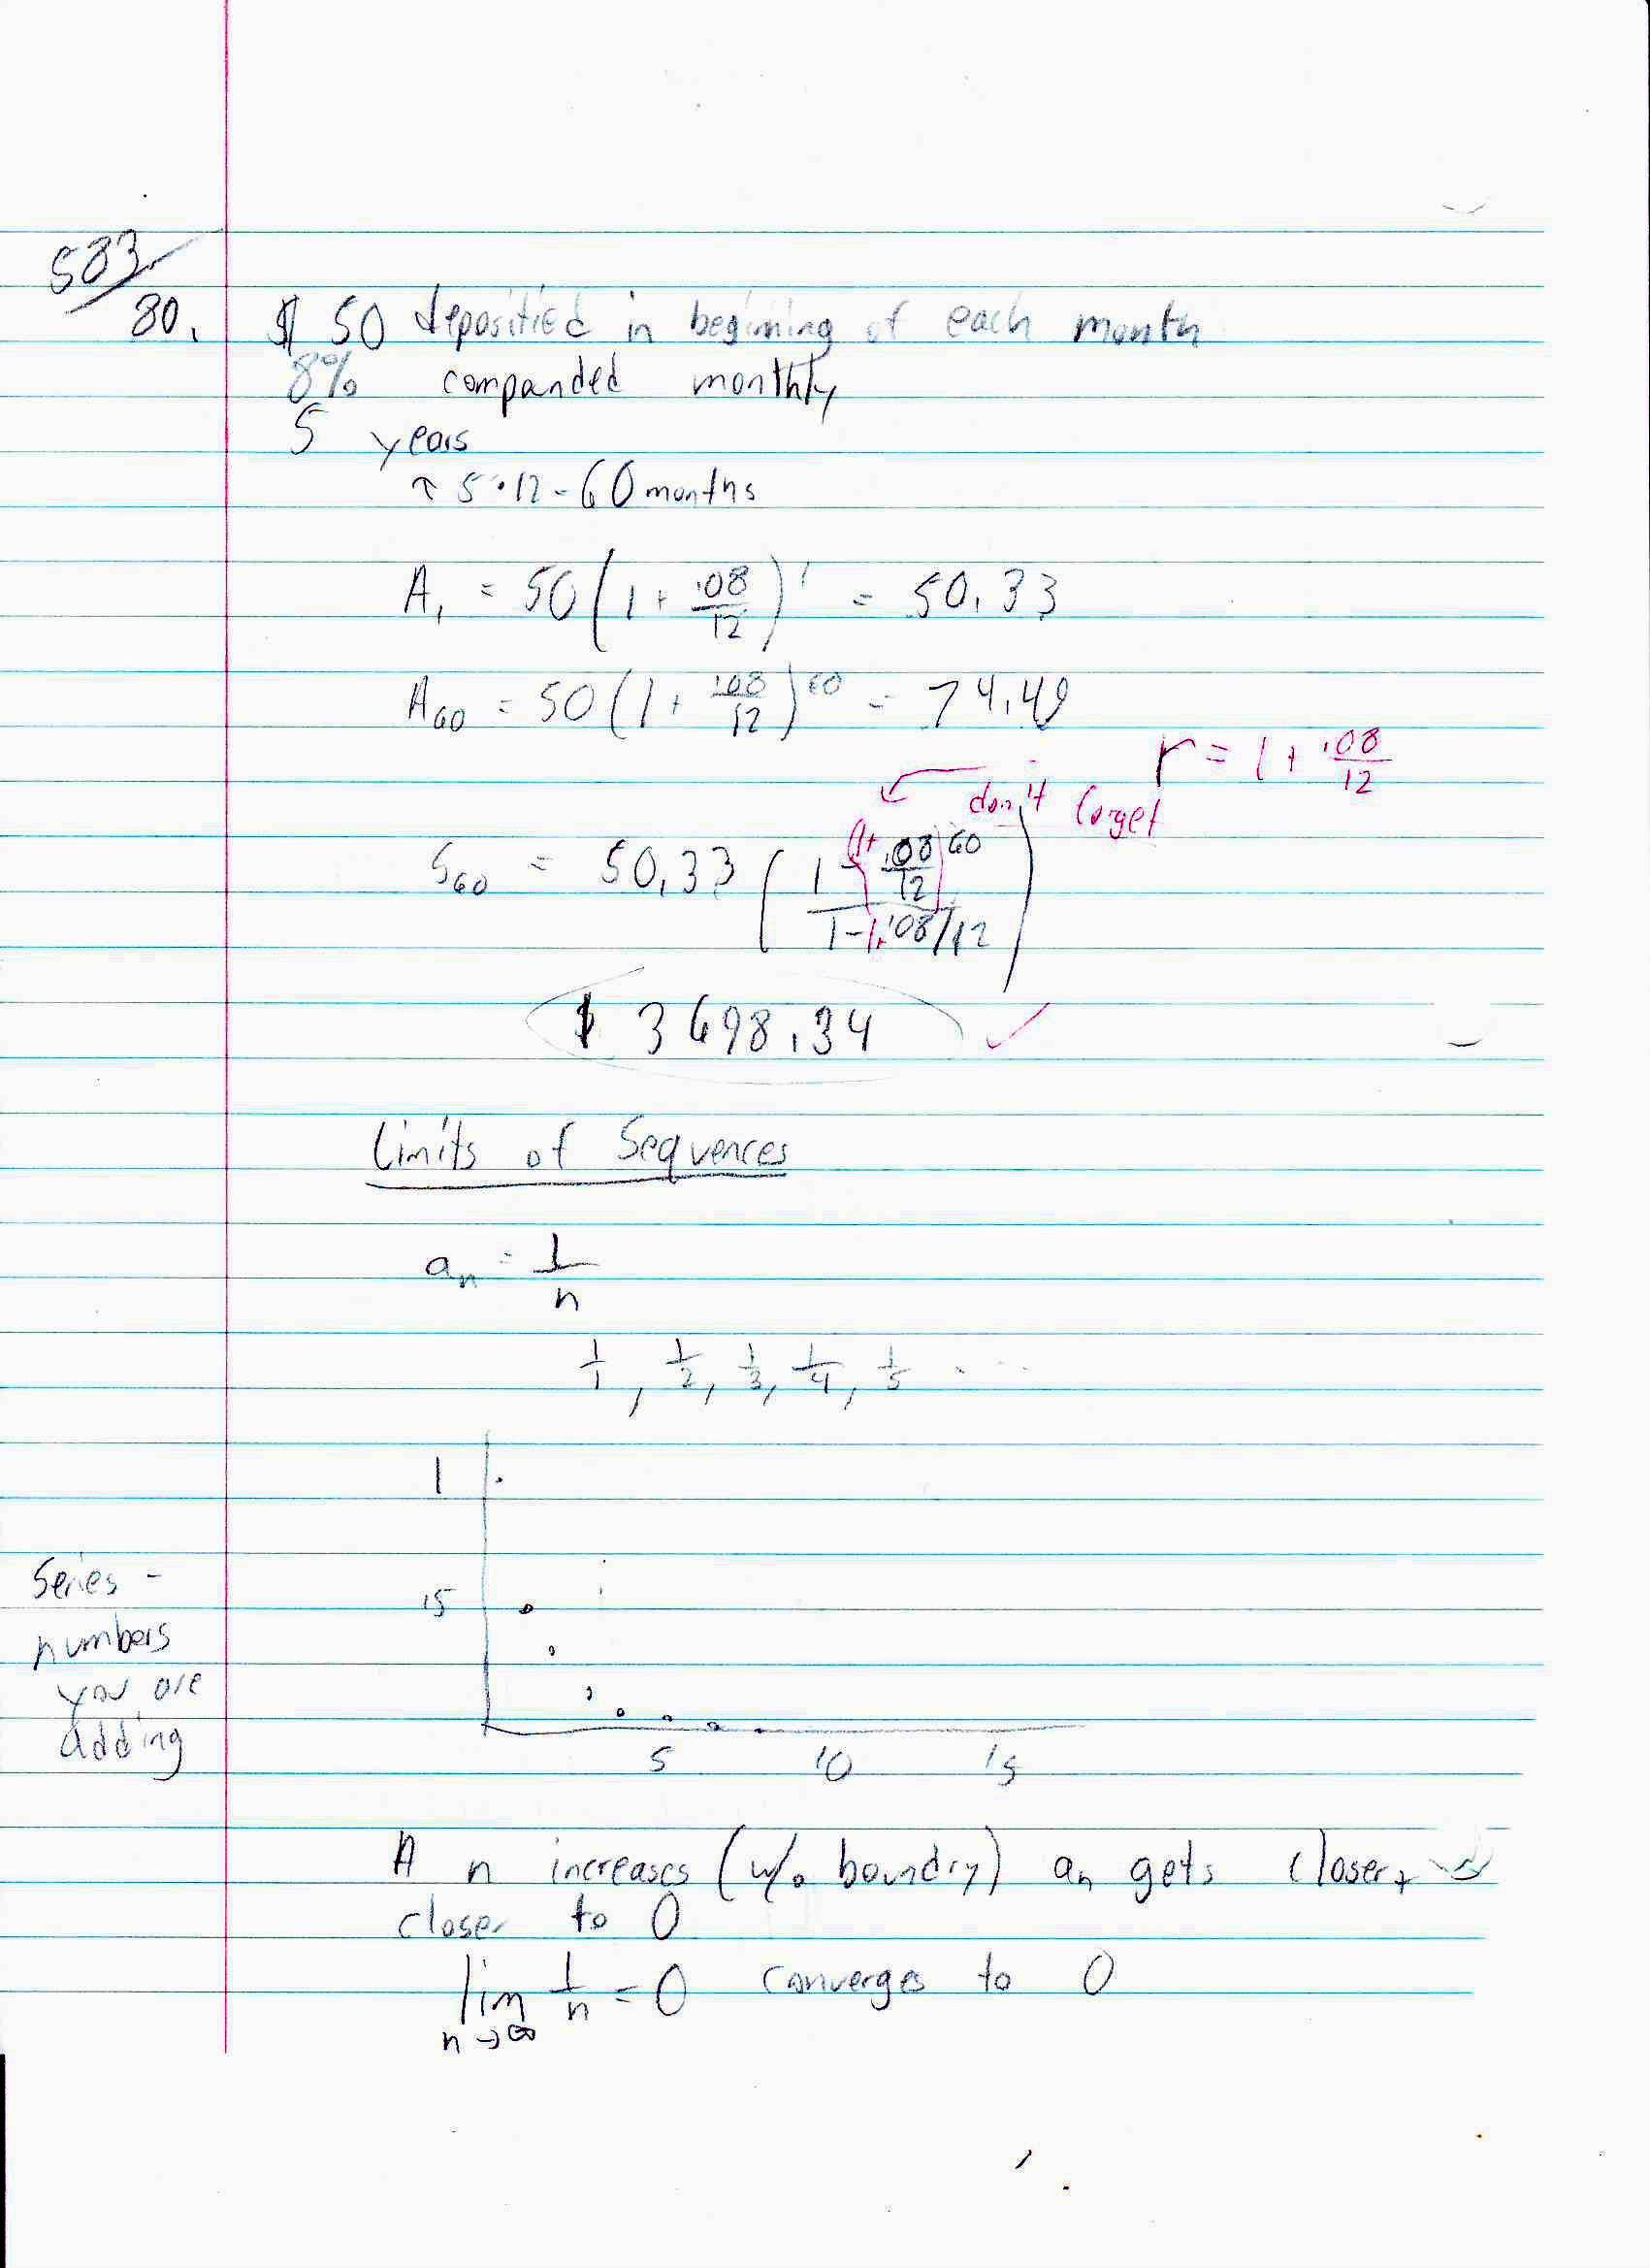 533/
80. $ 50 depositied in begining of each month
8% compounded monthly
5 years
↑ 5·12 = 60 months
A₁ = 50(1 + .08/12)¹ = 50.33
A₆₀ = 50(1 + .08/12)⁶⁰ = 74.49
r = 1 + .08/12
don't forget
S₆₀ = 50.33 ((1 - (1+ .08/12)⁶⁰)/(1 - 1+.08/12))
$ 3698.34 ✓
Limits of Sequences
aₙ = 1/n
1/1, 1/2, 1/3, 1/4, 1/5 ....
1
.5
5 10 15
Series -
numbers
you are
adding
A n increases (w/o boundry) aₙ gets closer +
closer to 0
lim 1/n = 0 converges to 0
n→∞